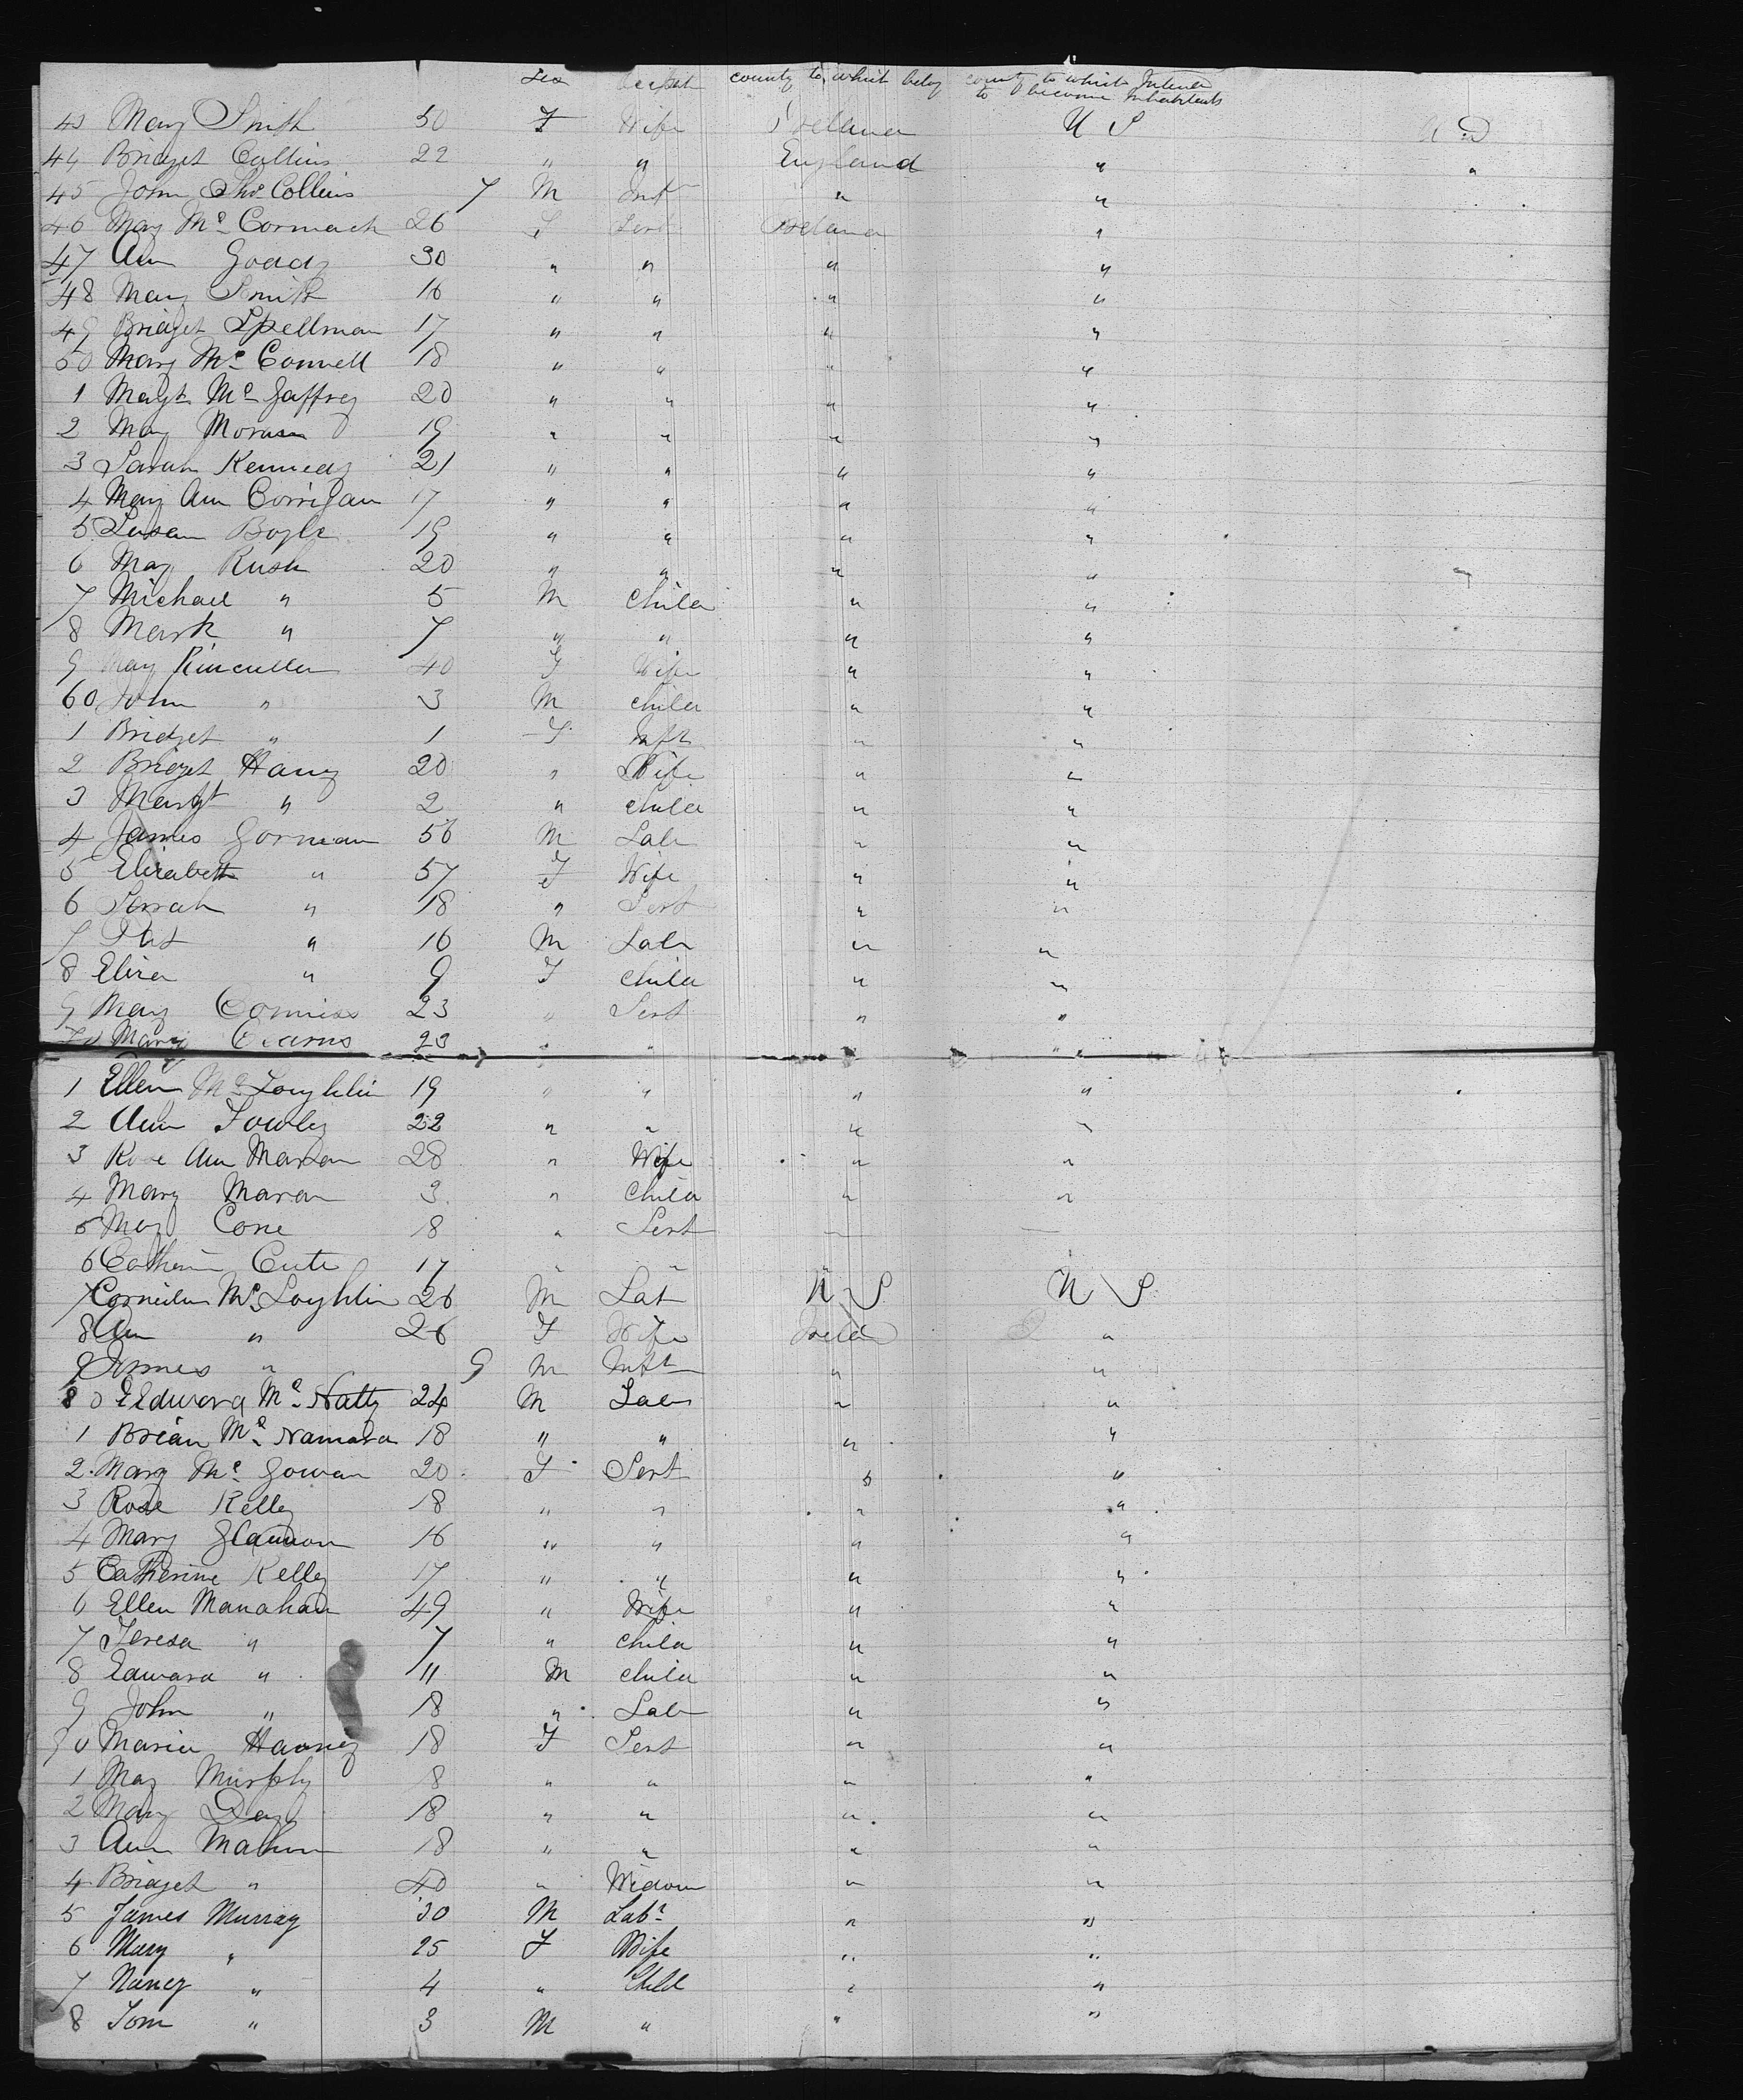 Sex Occupat country to which belog country to which Intend to become inhabitants
43 Mary Smith 50 F Wife Ireland U S
44 Bridget Collins 22 " " England "
45 John Thos Collins 7 M Inft " "
46 Mary Mc Cormack 26 F Sert Ireland "
47 Ann Grady 30 " " " "
48 Mary Smith 16 " " " "
49 Bridget Spellman 17 " " " "
50 Mary Mc Connell 18 " " " "
1 Magt Mc Gaffrey 20 " " " "
2 Mary Moran 19 " " " "
3 Sarah Kennedy 21 " " " "
4 Mary Ann Corrigan 17 " " " "
5 Susan Boyle 19 " " " "
6 May Rush 20 " " " "
7 Michael " 5 M Child " "
8 Mark " 7 " " " "
9 May Kincullen 40 F Wife " "
60 John " 3 M Child " "
1 Bridget " 1 F Inft " "
2 Bridget Hany 20 " Wife " "
3 Margt " 2 " Child " "
4 James Gorman 56 M Labr " "
5 Elizabeth " 57 F Wife " "
6 Sarah " 18 " Sert " "
7 Pat " 16 M Labr " "
8 Eliza " 9 F Child " "
9 Mary 23 " Sert " "
70 Mary Cearns 23 " " " "
1 Ellen Mc Loughlin 19 " " " "
2 Ann Fowley 22 " " " "
3 Rose Ann Maran 28 " Wife " "
4 Mary Maran 3 " Child " "
5 May Cone 18 " Sert
6 Catherin Cute 17 " " "
7 Cornelius Mc Loughlin 26 M Lab U S U S
8 Ann " 26 F Wife Ireld "
9 James " 9 M Inft " "
80 Edward Mc Natty 24 M Labr " "
1 Brian Mc Namara 18 " " " "
2 Mary Mc Gowan 20 F Sert " "
3 Rose Kelley 18 " " " "
4 Mary Glannon 16 " " " "
5 Catherine Kelley 17 " " " "
6 Ellen Manahan 49 " Wife " "
7 Teresa " 7 " Child " "
8 Edward " 11 M Child " "
9 John " 18 " Labr " "
90 Maria Harvey 18 F Sert " "
1 May Murphy 18 " " " "
2 Mary Day 18 " " " "
3 Ann Mathun 18 " " " "
4 Bridget " 40 " Widow " "
5 James Murray 30 M Labr " "
6 Mary " 25 F Wife " "
7 Nancy " 4 " Child " "
8 Tom " 3 M " " "